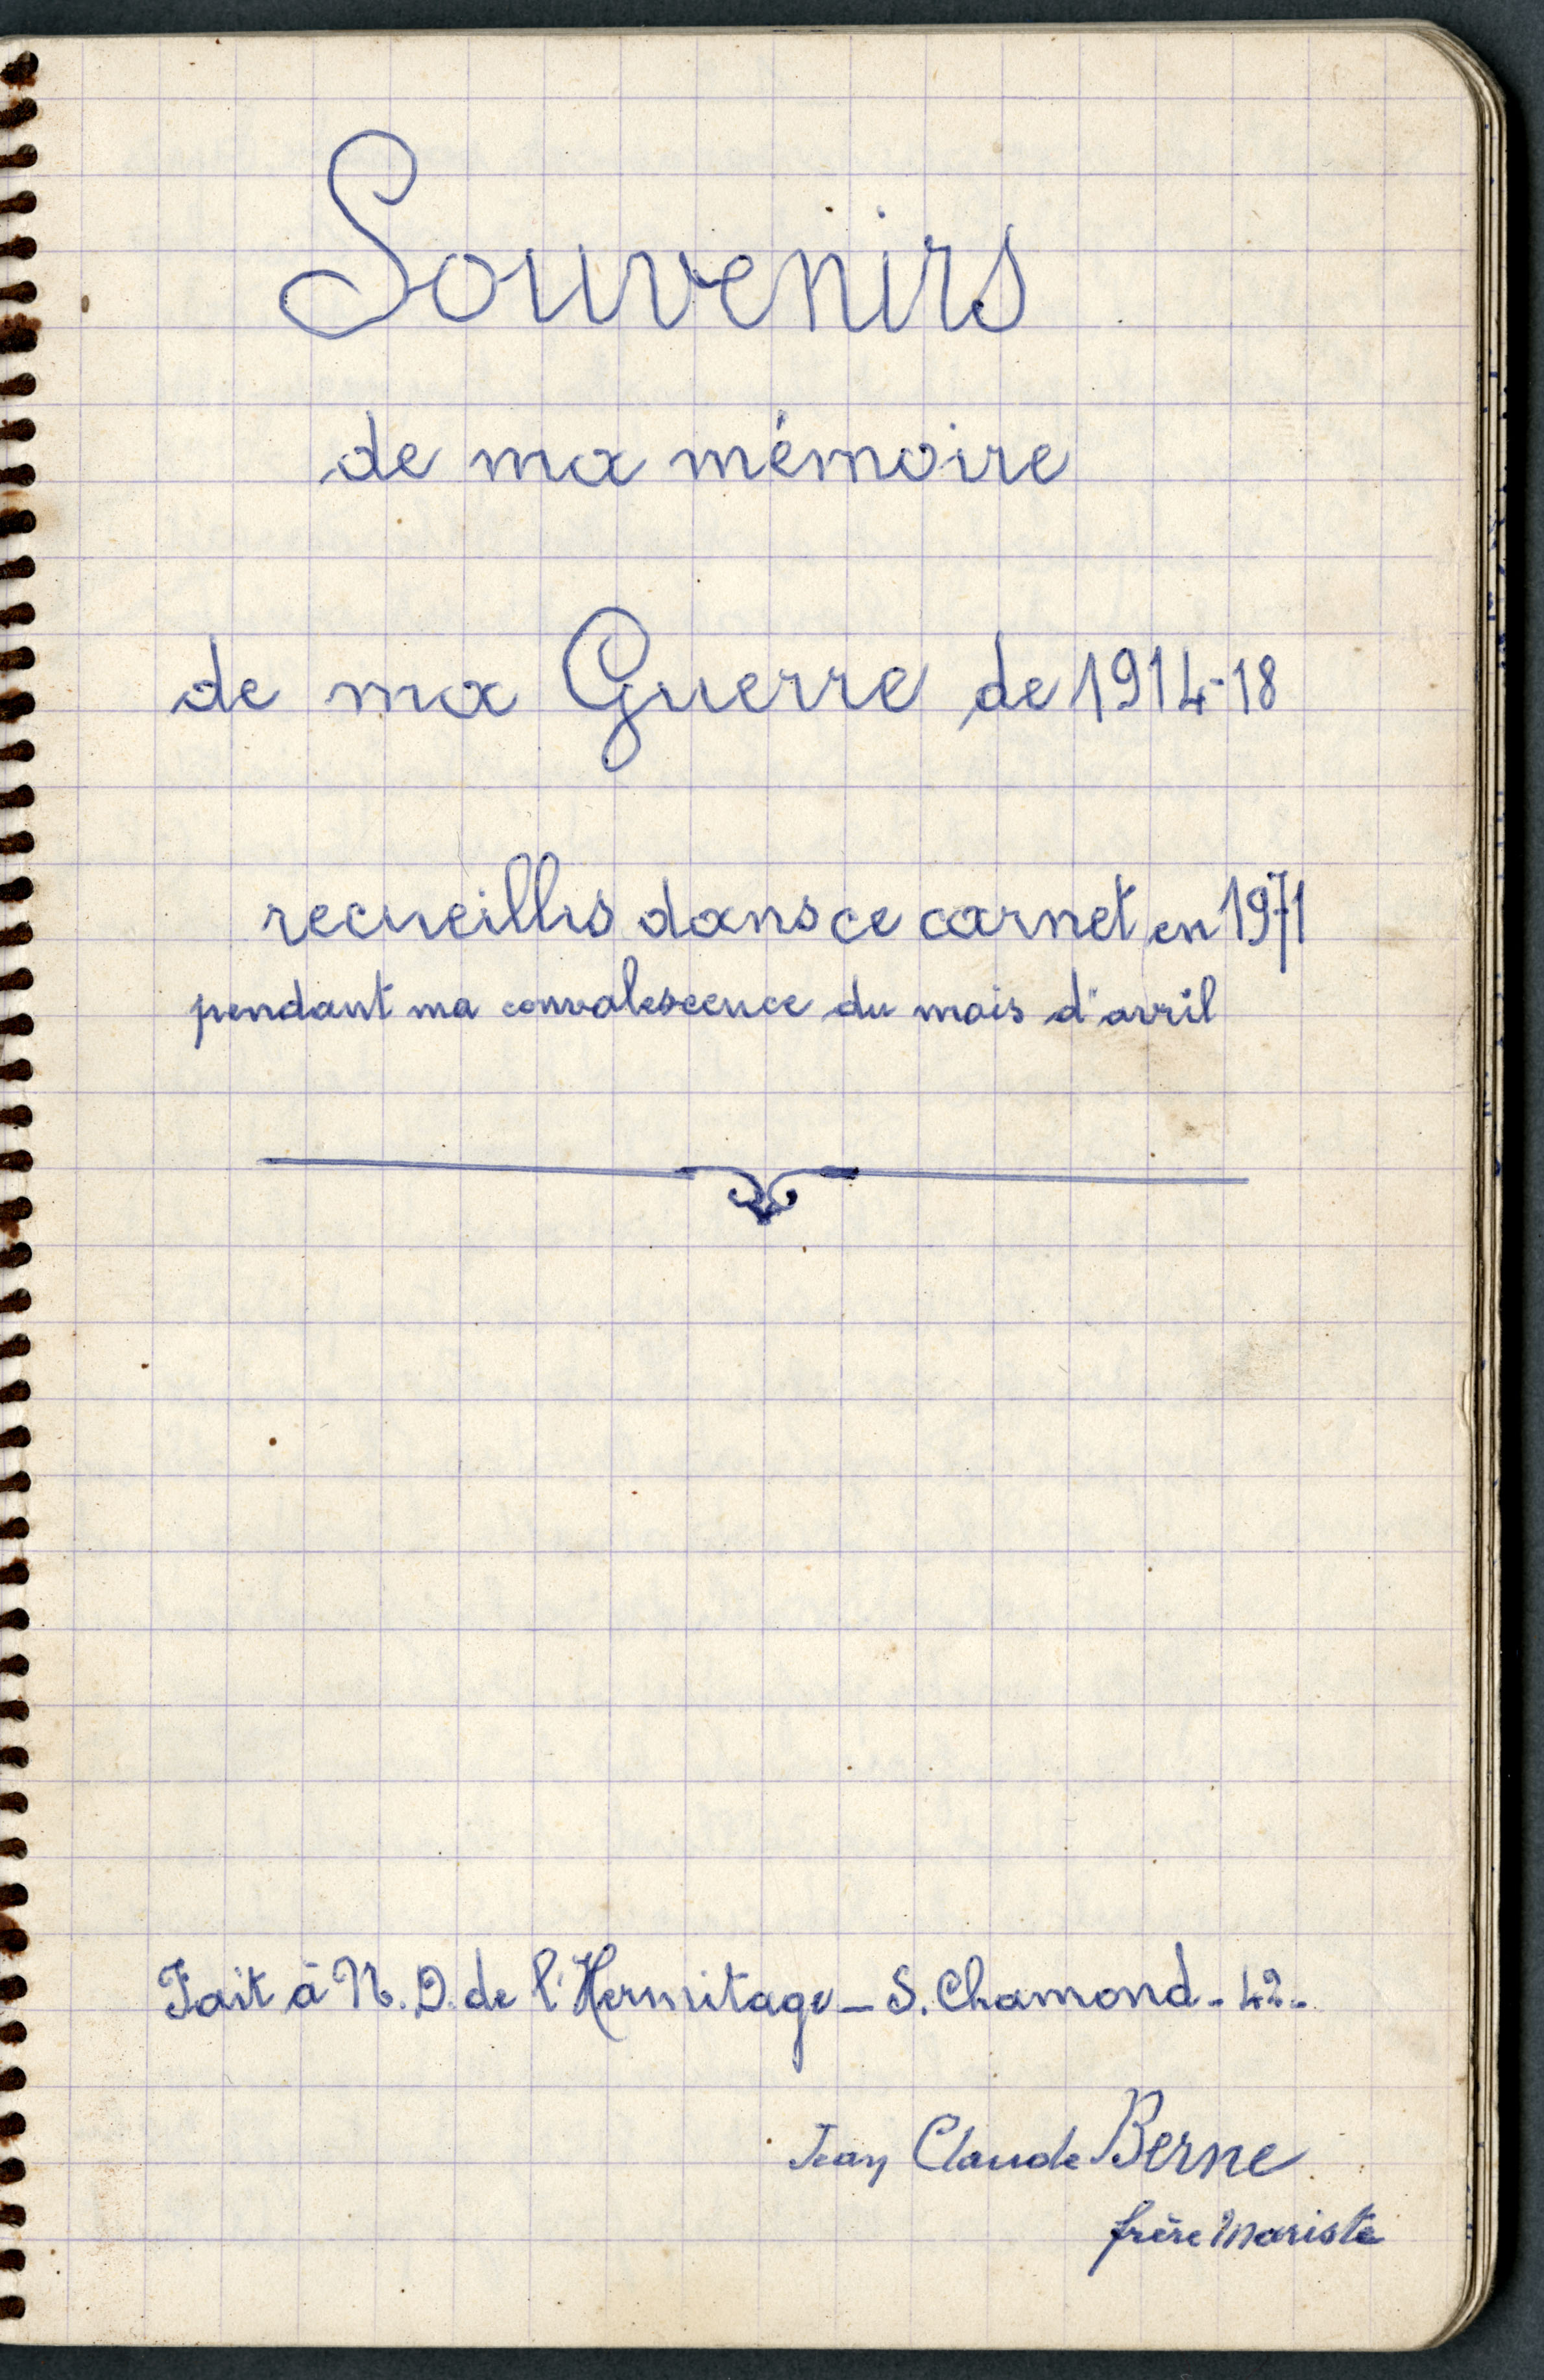 Souvenirs
de ma mémoire
de ma Guerre de 1914-18
recueillis dans ce carnet en 1971
pendant ma convalescence du mois d'avril
Fait à N.D. de l'Hermitage - S. Chamond - 42 -
Jean Claude Berne
frère Mariste